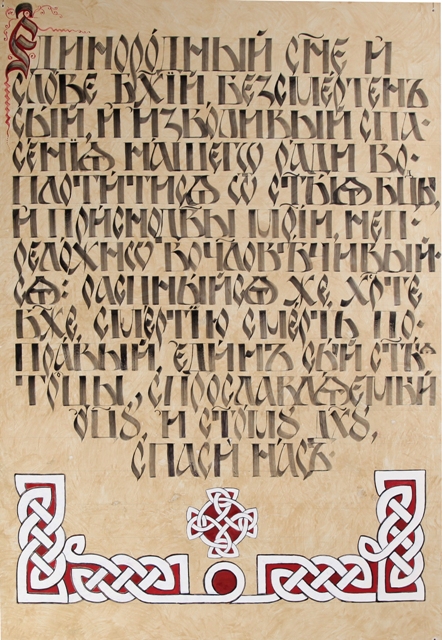 Единоро́дный сн҃е и҆
сло́ве бж҃їй безсме́ртенъ
сый и҆ и҆зво́ливый спа-
се́нїѧ на́шегѡ ра́ди во-
плоти́тисѧ ѿ ст҃ы́ѧ бцⷣы,
и҆ приснодв҃ы мр҃і́и, неп-
рело́жнѡ вочл҃овѣ́чивый-
сѧ: распны́йсѧ же, хр҃те
бж҃е, сме́ртїю сме́рть по-
пра́вый, є҆ди́нъ сый ст҃ы́ѧ
трⷪ҇цы, спрославлѧ́емый
ѻ҆ц҃ꙋ̀ и҆ ст҃о́мꙋ дх҃ꙋ,
спасѝ на́съ.